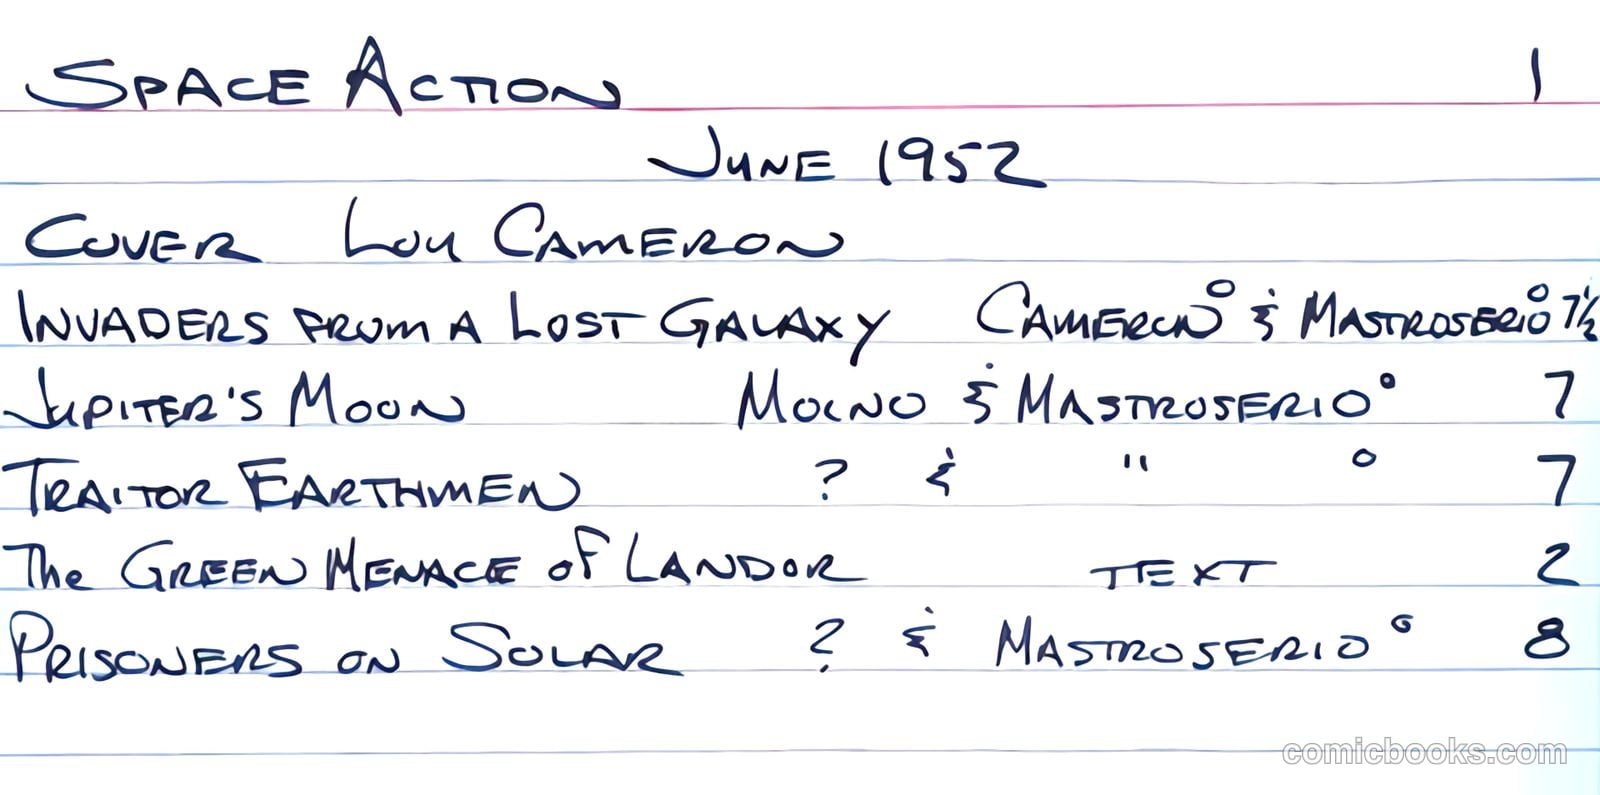 SPACE ACTION 1
JUNE 1952
COVER LOU CAMERON
INVADERS FROM A LOST GALAXY CAMERON° & MASTROSERIO° 7½
JUPITER'S MOON MOLNO & MASTROSERIO° 7
TRAITOR EARTHMEN ? & " ° 7
The GREEN MENACE OF LANDOR TEXT 2
PRISONERS ON SOLAR ? & MASTROSERIO° 8
comicbooks.com